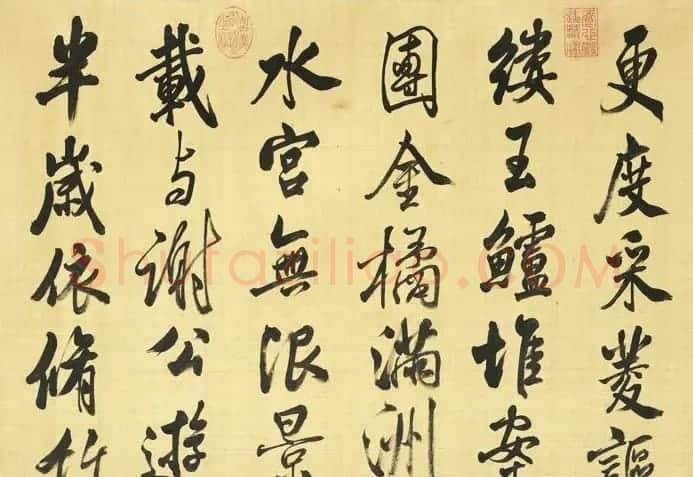 更度采菱謳
縷玉鱸堆案
團金橘滿洲
水宮無限景
載與謝公遊
半歲依脩竹
Shufaziliao.COM